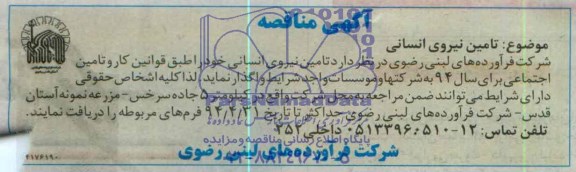 آگهی مناقصه
موضوع: تامین نیروی انسانی
شرکت فرآورده‌های لبنی رضوی در نظر دارد تامین نیروی انسانی خود را طبق قوانین کار و تامین
اجتماعی برای سال ۹۴ به شرکتها و موسسات واجد شرایط واگذار نماید. لذا کلیه اشخاص حقوقی
دارای شرایط می‌توانند ضمن مراجعه به محل شرکت واقع در کیلومتر ۵ جاده سرخس- مزرعه نمونه آستان
قدس- شرکت فرآورده‌های لبنی رضوی حداکثر تا تاریخ ۹۴/۲/۳۱ فرم‌های مربوطه را دریافت نمایند.
تلفن تماس: ۱۲-۰۵۱۳۳۹۶۰۵۱۰ داخلی ۲۵۲
شرکت فرآورده‌های لبنی رضوی
ParsNamadData
پایگاه اطلاع رسانی مناقصه و مزایده